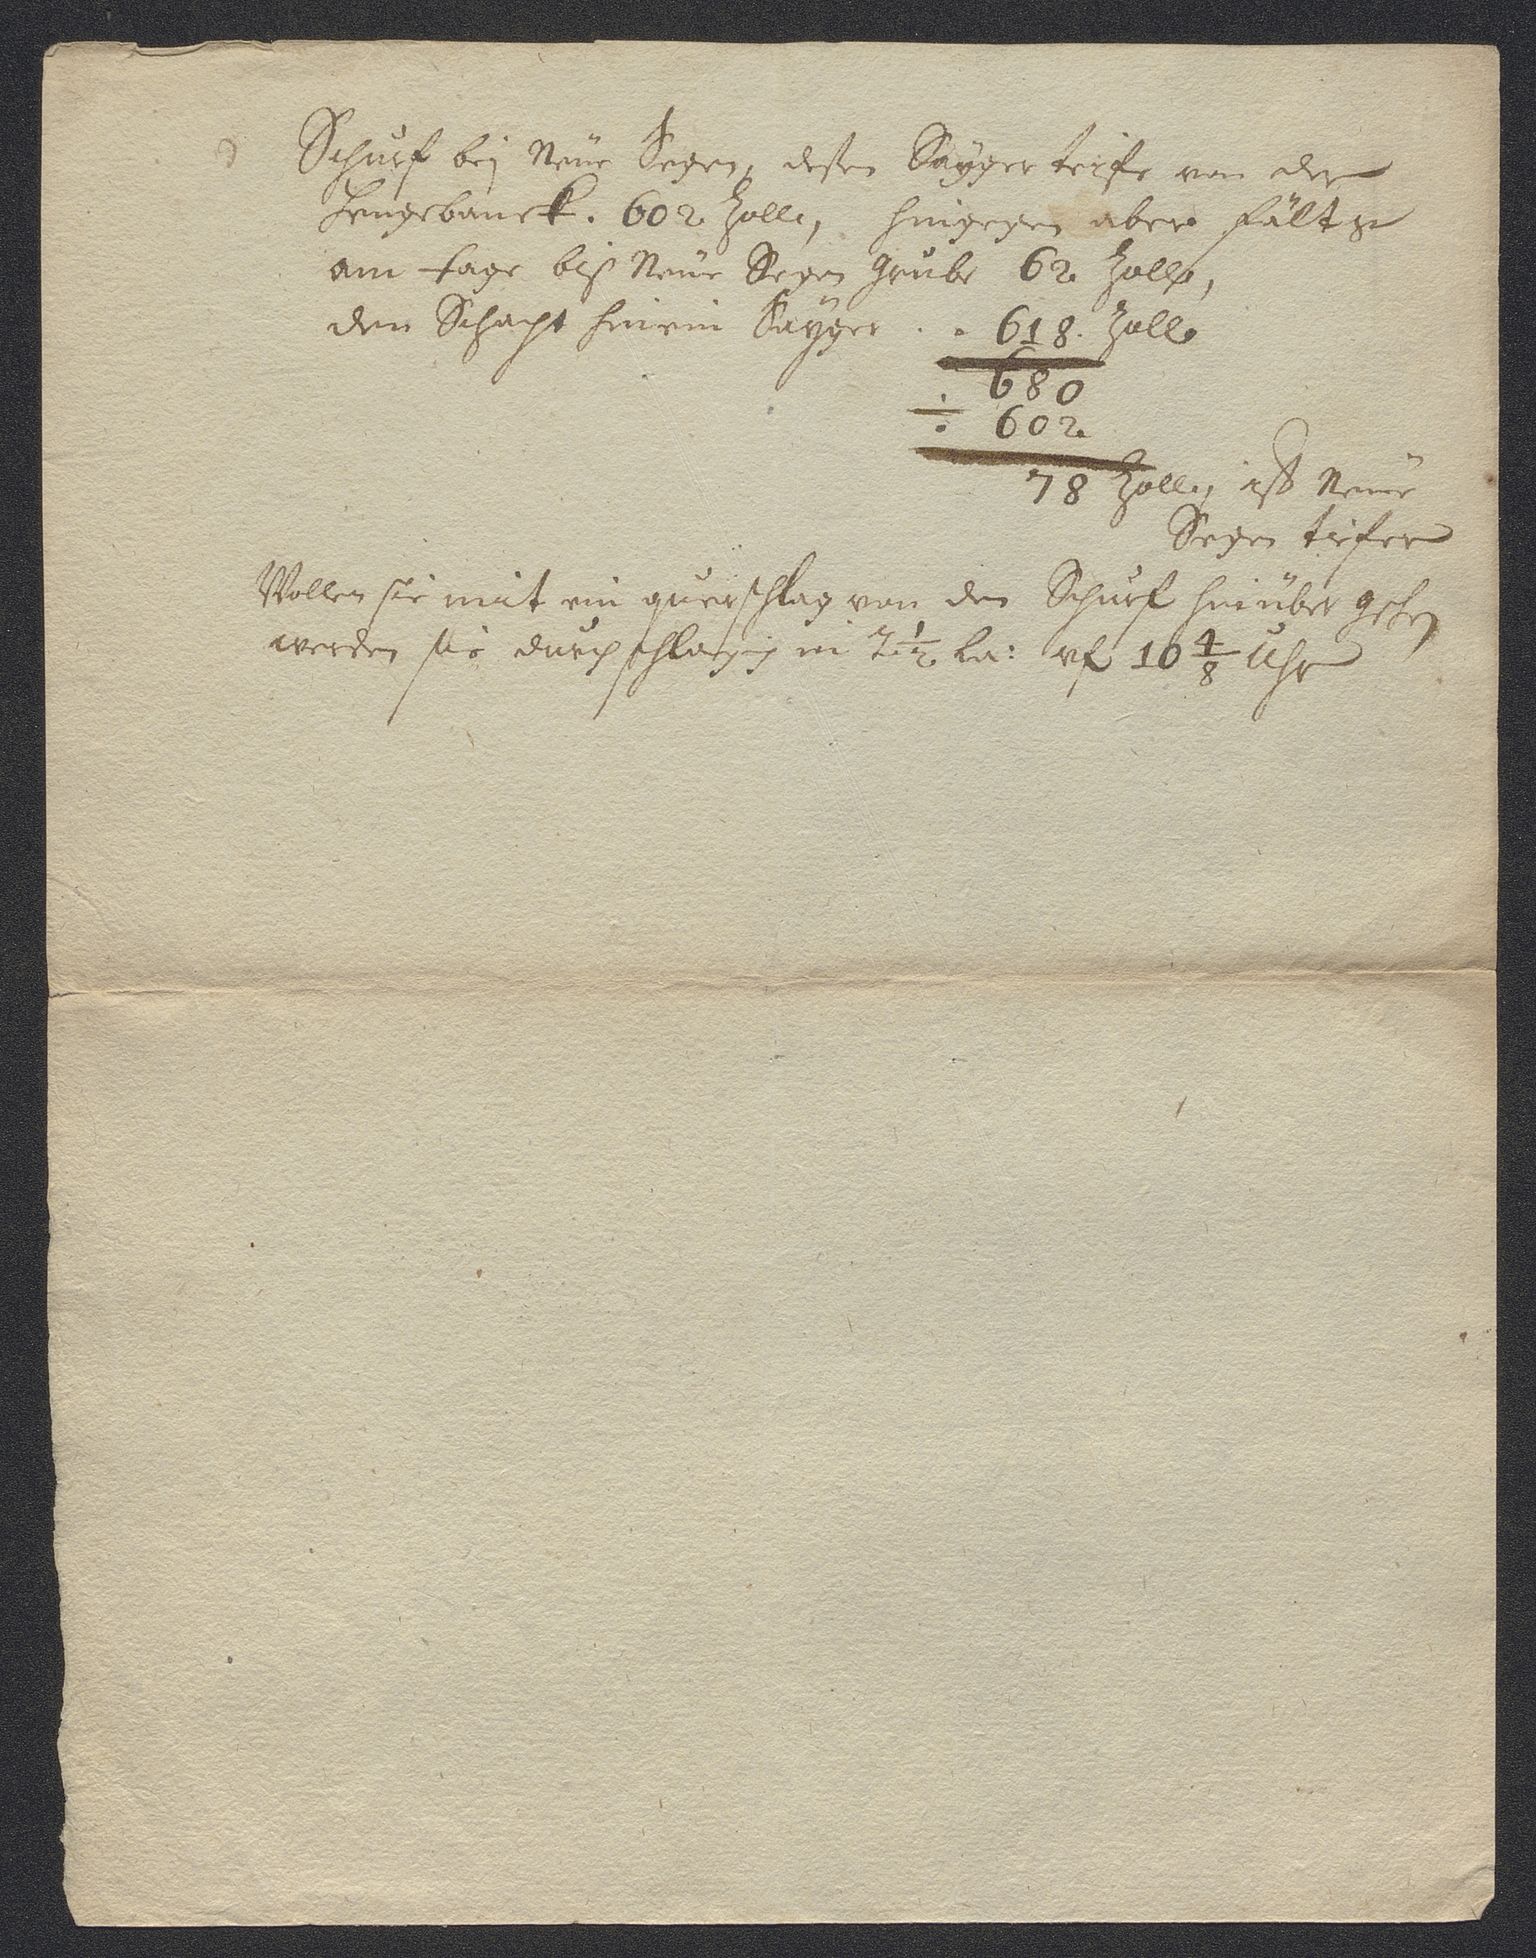 Schurf beÿ Neüe Segen, deßen Saÿger teife von der
Hengebanck. 602 Zolle, hingegen aber fält zu
am tage biß Neüe Segen grube 62 Zolle,
den Schacht hinein Saÿger . . 618. Zolle
680
÷ 602
78 Zolle, ist Neüe
Segen tiefer
Wollen sie mit ein querschlag von den Schurf hinüber gehen
werden sie durchschlagig in 7 1/2 La: uf 10 4/8 Uhr